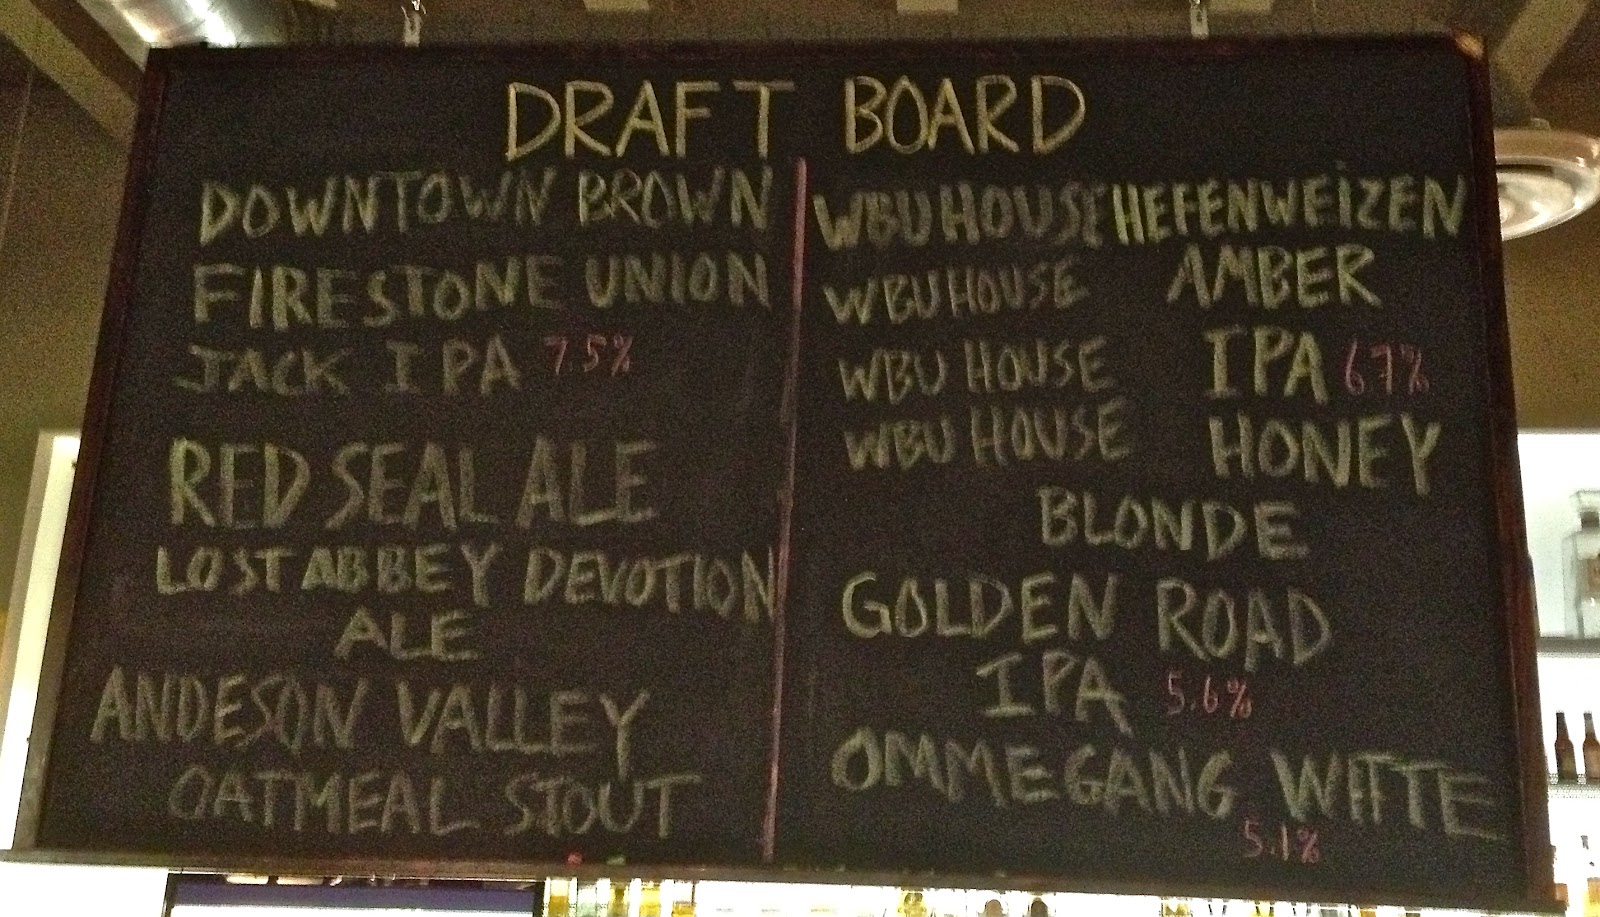 DRAFT BOARD
DOWNTOWN BROWN
FIRESTONE UNION
JACK IPA 7.5%
RED SEAL ALE
LOST ABBEY DEVOTION
ALE
ANDESON VALLEY
OATMEAL STOUT
WBU HOUSE HEFENWEIZEN
WBU HOUSE AMBER
WBU HOUSE IPA 6.7%
WBU HOUSE HONEY
BLONDE
GOLDEN ROAD
IPA 5.6%
OMMEGANG WITTE
5.1%